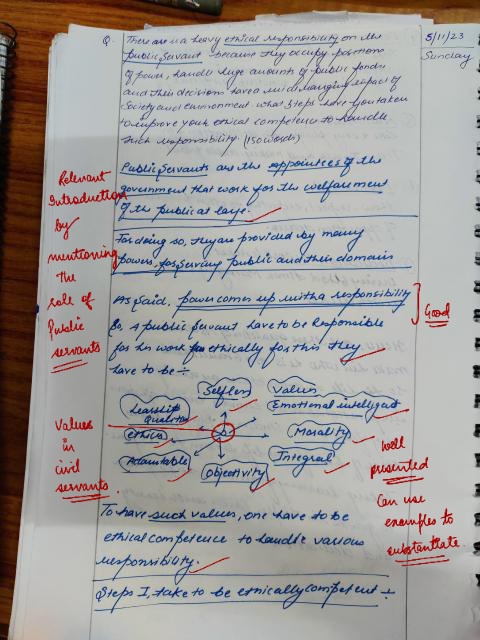 Q. There is a heavy ethical responsibility on the
public servant because they occupy positions
of power, handle huge amounts of public funds
and their decisions have a wide ranging impact of
society and environment. what steps have you taken
to improve your ethical competence to handle
such responsibility. (150 words)
5/11/23
Sunday
Public Servants are the appointees of the
government that work for the welfare ment
of the public at large.
Relevant
Introduction
by
mentioning
the
role of
Public
servants
For doing so, they are provided by many
powers, for serving public and their domains
As Said, power comes up with a responsibility
So, A public servant have to be Responsible
for his work for ethically for this they
have to be :-
Good
Selfless
Values
Emotional intelligent
Leaship
Qualities
ethics
Morality
Adaptable
Objectivity
Integral
Values
in
civil
servants.
well
presented
Can use
examples to
substantiate.
To have such values, one have to be
ethical competence to handle various
responsibility.
Steps I, take to be ethically competent :-